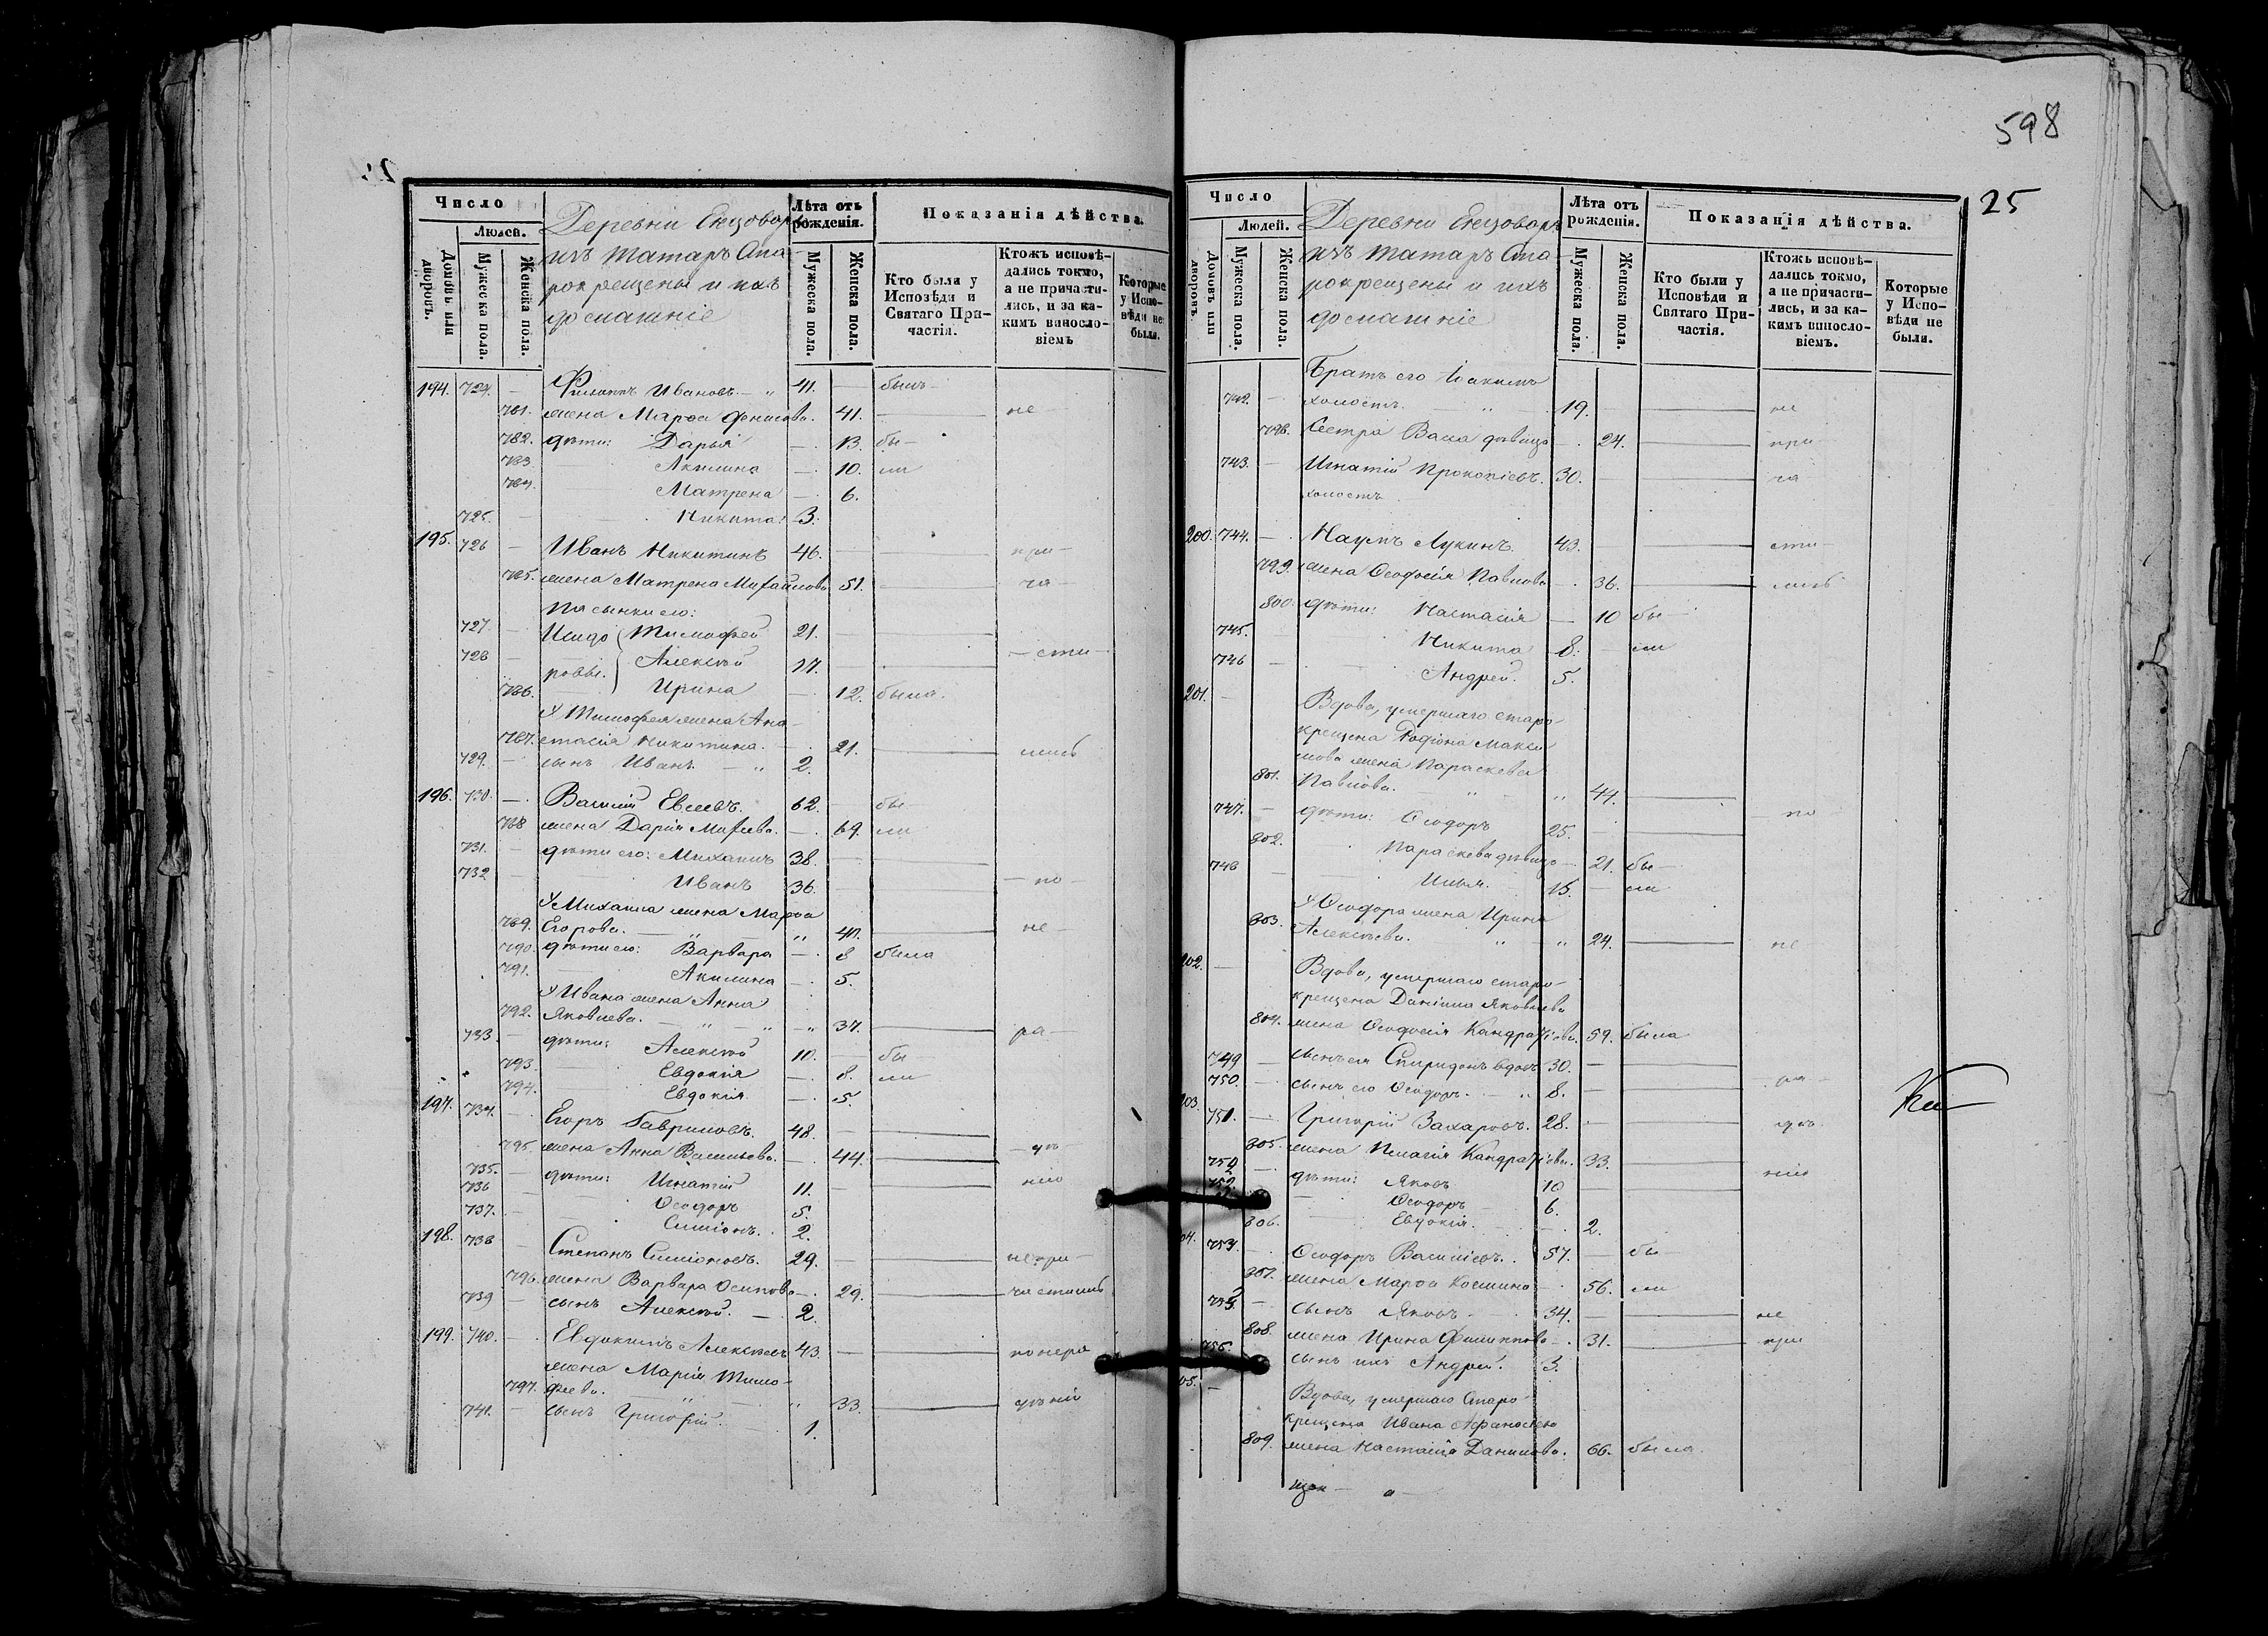 598
25
Число
Людей.
Домовъ или дворовъ.
Мужеска пола.
Женска пола.
Деревни Енцовары
изъ татаръ Ста-
рокрещены и ихъ
домашніе
Лѣта отъ рожденія.
Мужеска пола.
Женска пола.
Показанія дѣйства.
Кто были у Исповѣди и Святаго При-частія.
Ктожъ исповѣ-дались токмо, а не причасти-лись, и за ка-кимъ винословіемъ
Которые у Испо-вѣди не были.
194. 724. — Филиппъ Ивановъ. — „ 41. — былъ
781. жена Марѳа Денисова. 41. — не
782. дѣти: Дарья — 13. бы-
783. Акилина — 10. ли
784. Матрена — 6.
725. — Никита. 3.
195. 726 — Иванъ Никитинъ 46. — при-
785. жена Матрена Михайлова 51. — ча-
Пасынки его:
727. — Исидо- Тимофей 21. —
728 — ровы. Алексѣй 17. — сти-
786. Ирина — 12. была.
У Тимофея жена Ана-
787. стасія Никитина. — 21. — лись
729. — сынъ Иванъ — „ 2.
196. 730. — Василій Евсевъ. 62. — бы
788 жена Дарія Михеева. — 69. ли
731. — дѣти его: Михаилъ 38. —
732 — Иванъ 36. — по-
У Михаила жена Марѳа
789. Егорова. — „ — „ 40. — не-
790. дѣти его: Варвара — 8 была
791. Акилина — 5.
У Ивана жена Анна
792. Яковлева. — „ — „ — „ 37. — ра-
733. — дѣти: Алексѣй 10. — бы
793. Евдокія — 8. ли
794. Евдокія — 5.
197. 734. — Егоръ Гавриловъ. 48. —
795. жена Анна Васильева. — 44. — дѣ-
735. — дѣти: Игнатій 11. — нію
736 — Ѳеодоръ 5.
737. — Симіонъ. 2.
198. 738 — Степанъ Симіоновъ. 29. — не при-
796. жена Варвара Осипова — 29. — частились
739 — сынъ Алексѣй. — 2.
199. 740. — Евдокимъ Алексѣевъ 43. — по нера
жена Марія Тимо-
797. феева. — „ — „ 33. — дѣнію
741. — сынъ Григорій. 1.
Число
Людей.
Домовъ или дворовъ.
Мужеска пола.
Женска пола.
Деревни Енцовары
изъ татаръ Ста-
рокрещены и ихъ
домашніе
Лѣта отъ рожденія.
Мужеска пола.
Женска пола.
Показанія дѣйства.
Кто были у Исповѣди и Святаго При-частія.
Ктожъ исповѣ-дались токмо, а не причасти-лись, и за ка-кимъ винословіемъ.
Которые у Испо-вѣди не были.
Братъ его Іоакимъ
742. — холостъ. „ 19. — не
798. Сестра Васса дѣвица — 24. — при-
743. — Игнатій Прокопіевъ. 30. — ча
холостъ
200. 744. — Наумъ Лукинъ. 43. — сти-
799. жена Ѳеодосія Павлова — 36. — лись
800. дѣти: Настасія — 10 бы
745. Никита 8. — ли
746 — Андрей. 5.
201. — Вдова, умершаго старо-
крещена Родіона Макси-
мова жена Параскева
801. Павлова. — „ „ 44. —
747. — дѣти: Ѳеодоръ 25. — по-
802. Параскева дѣвица — 21. бы
748 — Илья. 15. — ли
У Ѳеодора жена Ирина
803. Алексѣева. „ — „ 24. — не
202. — Вдова, умершаго старо-
крещена Даніила Яковлева
804. жена Ѳеодосія Кандратіева. 59. была
749 — сынъ ея Спиридонъ вдовъ 30. —
750. — сынъ его Ѳеодоръ. „ 8. — ра-
203. 751. — Григорій Захаровъ. 28. — дѣ-
805. жена Пелагія Кандратіева. 33. — нію
752. — дѣти: Яковъ 10
Ѳеодоръ 6.
806. Евдокія. — 2.
204. 754. — Ѳеодоръ Василіевъ. 57. — бы
807. жена Марѳа Космина — 56. ли
755. — сынъ Яковъ 34. — не
808. жена Ирина Филиппова — 31. — при
756. сынъ ихъ Андрей. 3.
205. — Вдова, умершаго Старо-
крещена Ивана Афанасьева
809. жена Настасія Данилова. 66. была.